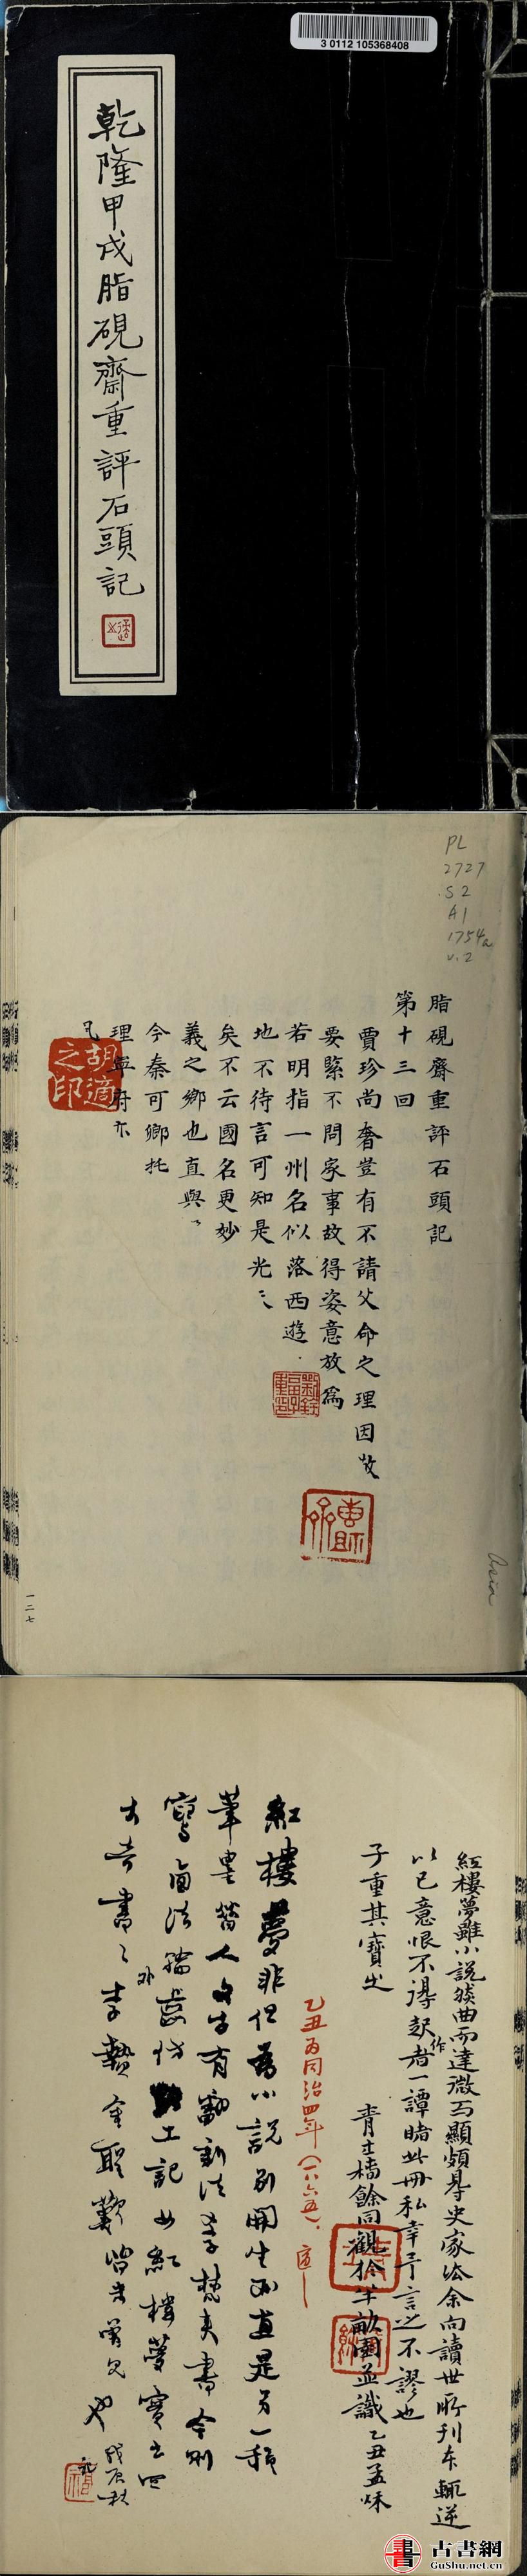 3 0112 105368408
乾隆甲戌脂硯齋重評石頭記
PL
2727
.S2
A1
1754a
v.2
脂硯齋重評石頭記
第十三回
賈珍尚奢豈有不請父命之理因敁
要緊不問家事故得姿意放為
若明指一州名似落西遊
地不待言可知是光〻
矣不云國名更妙
義之鄉也直與
今秦可卿托
理寧府亦
凡
胡適之印
Asia
一二七
紅樓夢雖小說然曲而達微而顯頗得史家法余向讀世所刊本輒逆
以己意恨不得起作者一譚睹此冊私幸予言之不謬也
子重其寶之
青士椿餘同觀於半畝園並識乙丑孟秋
乙丑為同治四年（一八六五）．適
紅樓夢非但為小說別開生面直是另一種
筆墨昔人文字有翻新法學梵夾書今則
寫西法輪齒仿考工記如紅樓夢實出四
大奇書之外李贄金聖歎皆未曾見也
戊辰秋記
古書網
GuShu.net.cn